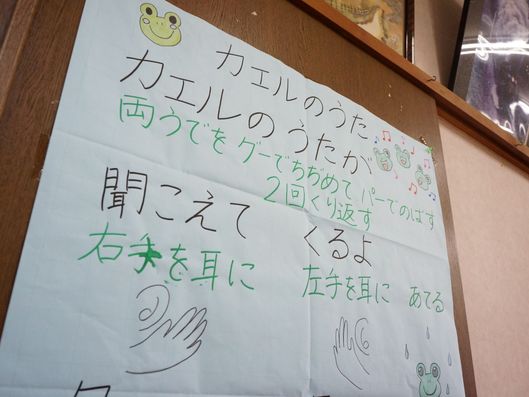 カエルのうた
カエルのうたが
両うでをグーでちぢめて パーでのばす
2回くり返す
聞こえて くるよ
右手を耳に 左手を耳に あてる